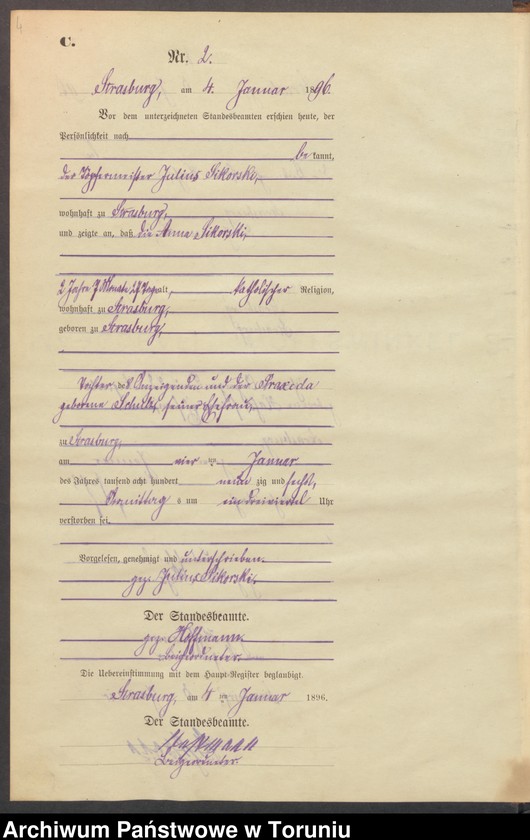 4
C.
Nr. 2.
Strasburg, am 4. Januar 1896.
Vor dem unterzeichneten Standesbeamten erschien heute, der
Persönlichkeit nach
be kannt,
der Töpfermeister Julius Sikorski,
wohnhaft zu Strasburg,
und zeigte an, daß die Anna Sikorski,
2 Jahre 7 Monate 17 Tage alt, katholischer Religion,
wohnhaft zu Strasburg,
geboren zu Strasburg,
Tochter des Anzeigenden und der Praxeda
geborene Schultz, seiner Ehefrau,
zu Strasburg,
am vier ten Januar
des Jahres tausend acht hundert neun zig und sechs,
Vormittag s um ein dreiviertel Uhr
verstorben sei.
Vorgelesen, genehmigt und unterschrieben.
gez. Julius Sikorski,
Der Standesbeamte.
gez. Hoffmann.
Beigeordneter.
Die Uebereinstimmung mit dem Haupt-Register beglaubigt.
Strasburg, am 4 ten Januar 1896.
Der Standesbeamte.
Hoffmann
Beigeordneter.
Archiwum Państwowe w Toruniu